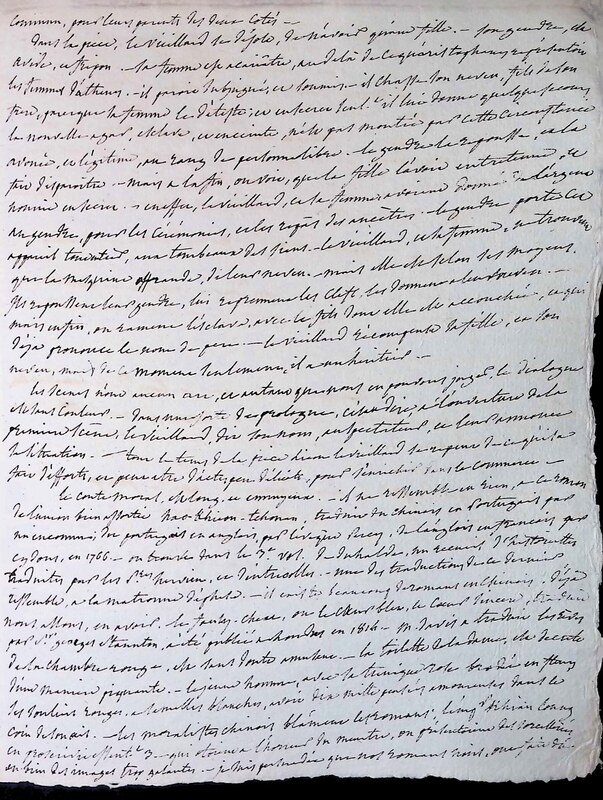 commun, pour leurs parents des deux cotés —
Dans la piece, le vieillard se désole, de n'avoir qu'une fille. — son gendre, est
avide, et fripon — sa femme est acariâtre, au delà de ce qu'aristophane représentoit
les femmes d'athenes. — il paroit subjugué, et soumis — il chasse son neveu, fils de son
frere, parce que sa femme le déteste; et en secret seul.t il lui donne quelques secours
la nouvelle agar, esclave, et enceinte, n'est pas montrée par cette circonstance
avouée, et légitime, au rang de personne libre. le gendre la repousse, et la
fait disparoitre. — mais a la fin, on voit, que la fille l'avoit entretenue, et
nourrie en secret. — en effet, le vieillard, et sa femme, avoient donné de l'argent
au gendre, pour les cérémonies, et les repas des ancêtres. — le gendre porte cet
appareil tombeaux des siens. le vieillard, et sa femme, ne trouvent
que la mesquine offrande de leur neveu. — mais elle est selon ses moyens.
Ils repoussent leur gendre, lui reprennent les clefs, les donnent a leur neveu. —
mais enfin, on ramene l'esclave, avec le fils dont elle est accouchée, et qui
déja prononce le nom de pere. — le vieillard récompense sa fille, et son
neveu, mais de ce moment seulement, il a un héritier. —
les scenes n'ont aucun art, et autant que nous en pouvons juger le dialogue
est sans couleur. — dans une sorte de prologue, c'est a dire, a l'ouverture de la
premiere scène, le vieillard dit son nom, au spectateur, et leur annonce
sa situation. — tout le tems de la piece le vieillard se repent de ce qu'il a
fait d'efforts, et peut etre d'actes peu délicats, pour s'enrichir dans le commerce. —
le conte moral, est long, et ennuyeux. — il ne ressemble en rien, a ce roman
de l'union bien assortie hao-khieou-tchouan, traduit du chinois en portugais par
un inconnu; du portugais en anglois, par l'évêque Percy, de l'anglois en francois par
eydous, en 1766. — on trouve dans le 3.e vol. de Duhalde, un recueil d'historiettes
traduites par les P.res herview, et d'entrecolles. — une des traductions de ce dernier
ressemble, a la matrone d'ephese. — il existe beaucoup de romans en chinois. déja
nous allons, en avoir. le
par S.r georges Staunton, a été publié a Londres en 1816 — M. davis a traduit les
de la chambre rouge, est sans doute amusant. — la toilette de la dame, est décrite
d'une maniere piquante. — le jeune homme, avec sa tunique rose brodée en fleurs
les souliers rouges, a semelles blanches, avoit dix mille pensées amoureuses dans le
coin de son œil. — les moralistes chinois blament les romans;
qui
des images trop galantes. — je suis persuadée que nos romans